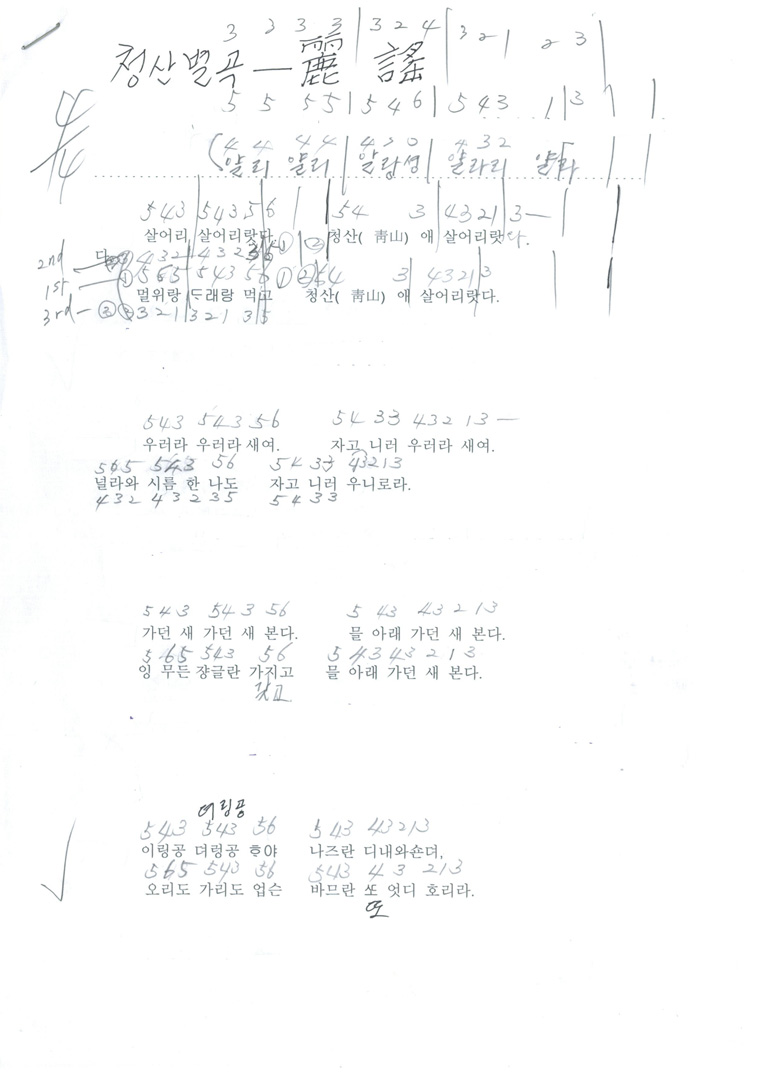 3 3 3 3 | 3 2 4 | 3 2 1 2 3 |
청산별곡 — 麗 謠
5 5 5 5 | 5 4 6 | 5 4 3 1 3 | |
4/4
(얄리 얄리 | 얄랑셩 | 얄라리 얄라 | |
5 4 3 | 5 4 3 5 6 | | 5 4 3 | 4 3 2 1 | 3 — | |
살어리 살어리랏다 ① ② 청산( 靑山) 애 살어리랏다.
2nd
1st ① 5 6 5 5 4 3 5 6 ① ② 5 4 3 4 3 2 1 3
멀위랑 ᄃᆞ래랑 먹고 청산( 靑山) 애 살어리랏다.
3rd — ② ③ 3 2 1 3 2 1 3 5
5 4 3 5 4 3 5 6 5 4 3 3 4 3 2 1 3 —
우러라 우러라 새여. 자고 니러 우러라 새여.
5 6 5 5 4 3 5 6 5 4 3 3 4 3 2 1 3
널라와 시름 한 나도 자고 니러 우니로라.
4 3 2 4 3 2 3 5 5 4 3 3
5 4 3 5 4 3 5 6 5 4 3 4 3 2 1 3
가던 새 가던 새 본다. 믈 아래 가던 새 본다.
5 6 5 5 4 3 5 6 5 4 3 4 3 2 1 3
잉 무든 쟝글란 가지고 믈 아래 가던 새 본다.
갖고
더링공
5 4 3 5 4 3 5 6 5 4 3 4 3 2 1 3
이링공 뎌렁공 ᄒᆞ야 나즈란 디내와숀뎌,
5 6 5 5 4 3 5 6 5 4 3 4 3 2 1 3
오리도 가리도 업슨 바므란 ᄯᅩ 엇디 호리라.
또